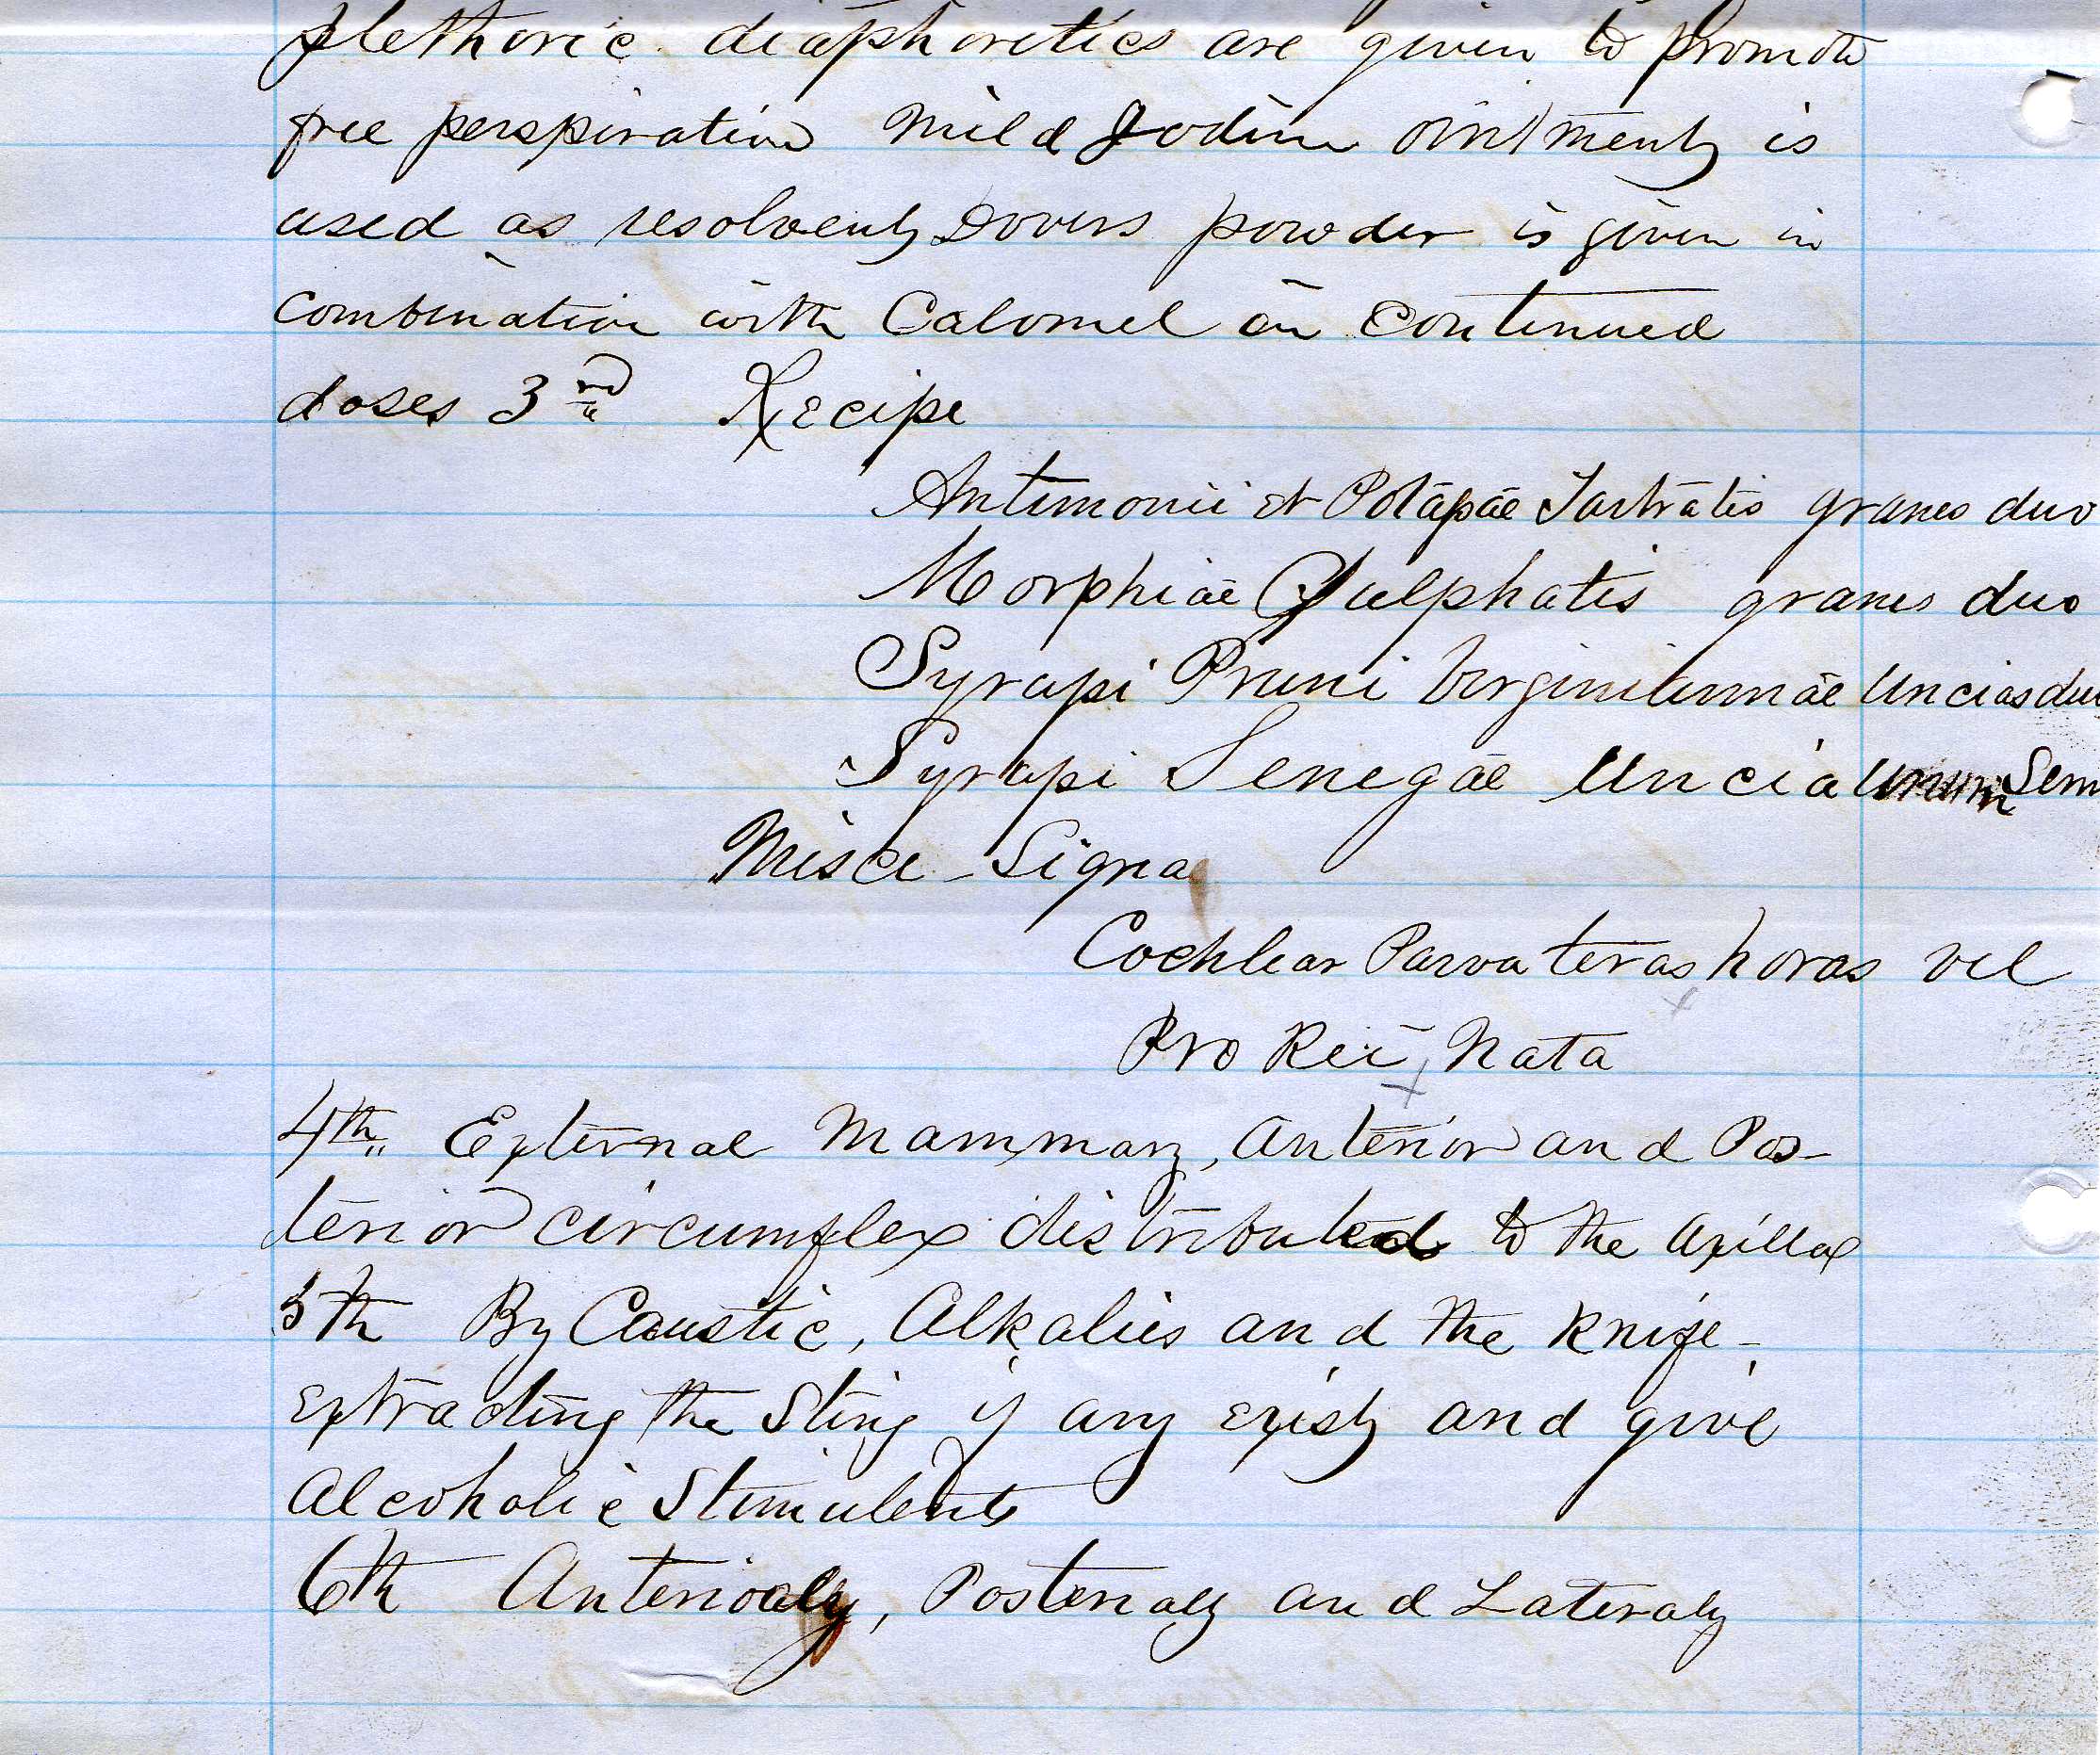 plethoric. diaphoretics are given to promote
free perspiration Mild Iodine ointment is
used as resolvent Dovers powder is given in
combination with Calomel in continued
doses 3rd Recipe
Antimonii et Potapae Tartratis granes duo
Morphiae Sulphatis granes duo
Syrupi Pruni Virginiannae Uncias du
Syrupi Senegae Uncia Sem
Misce Signa
Cochlear Parva teras horas vel
Pro Rei, Nata
4th External Mammary, anterior and Pos-
terior circumflex distributed to the axillae
5th By Caustic, Alkalies and the knife-
extracting the Sting if any exist and give
alcoholic Stimulents
6th Anterioaly, Posterialy and Lateraly